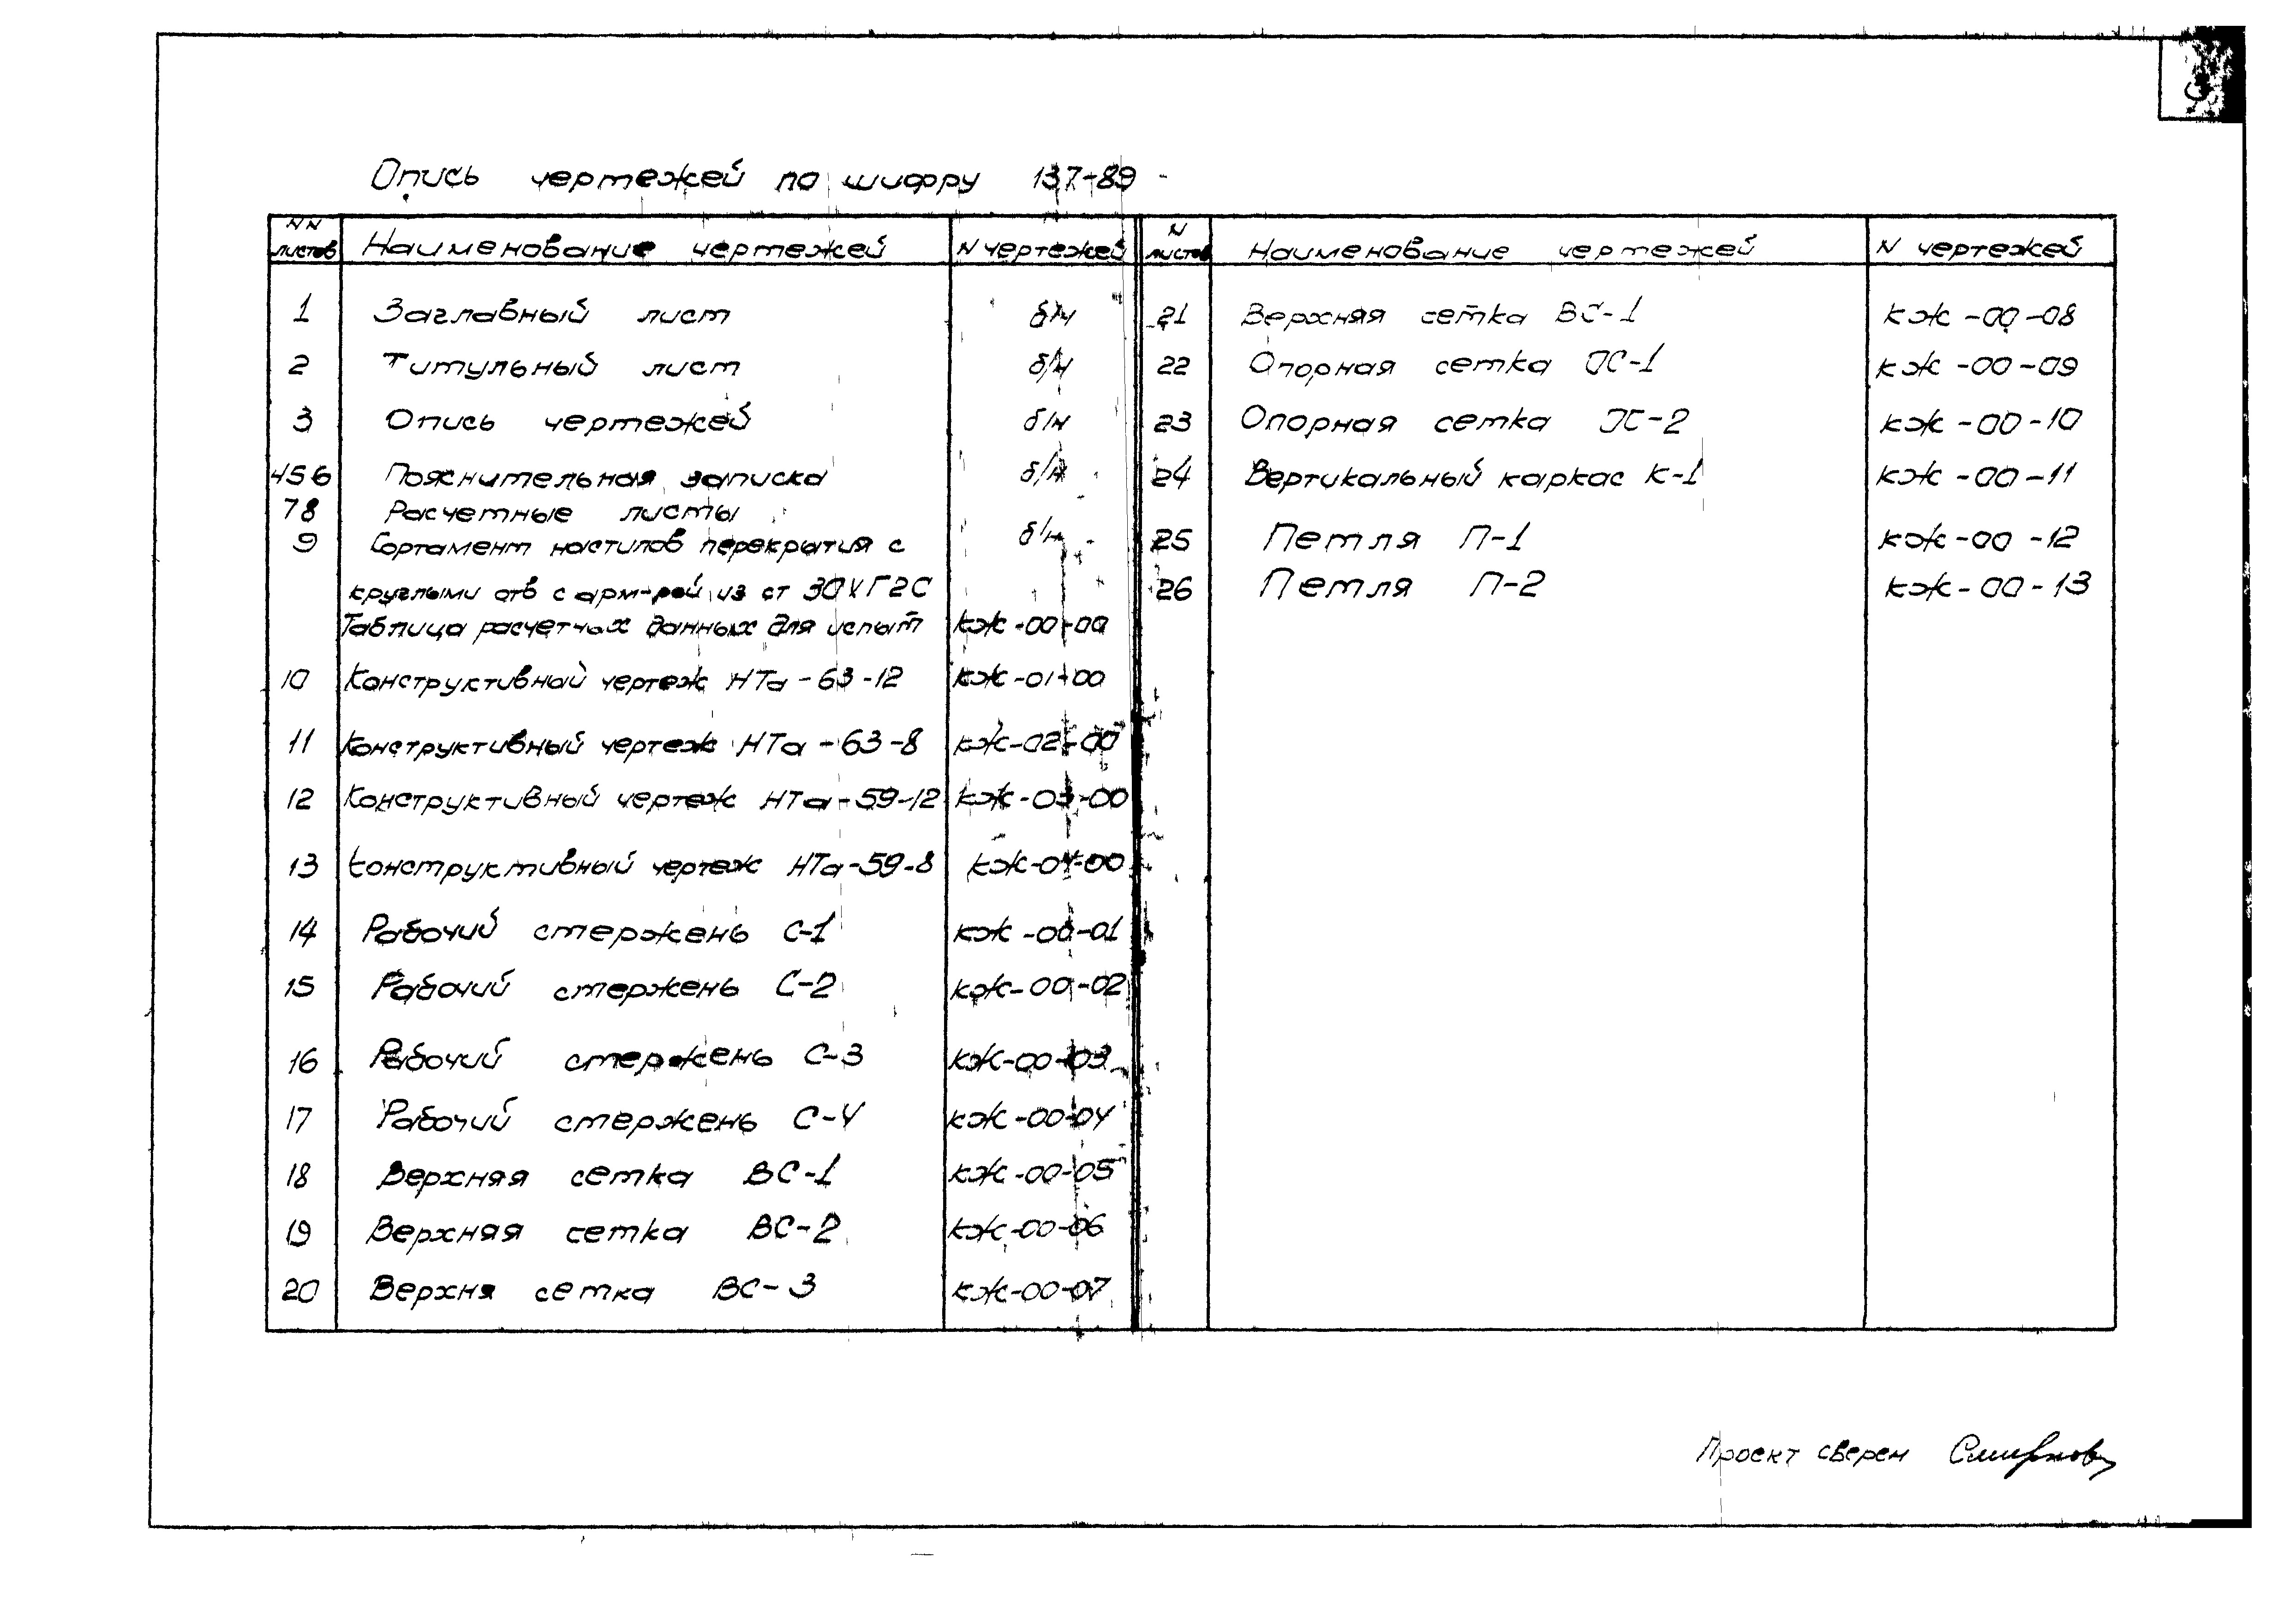 3
Опись чертежей по шифру 137-89
NN листов Наименование чертежей N чертежей N листов Наименование чертежей N чертежей
1 Заглавный лист б/н
2 Титульный лист б/н
3 Опись чертежей б/н
4 5 6 Пояснительная записка б/н
7 8 Расчетные листы
9 Сортамент настилов перекрытия с б/н
круглыми отв с арм-рой из ст 30ХГ2С
Таблица расчетных данных для испыт КЖ-00-00
10 Конструктивный чертеж НТа-63-12 КЖ-01-00
11 Конструктивный чертеж НТа-63-8 КЖ-02-00
12 Конструктивный чертеж НТа-59-12 КЖ-03-00
13 Конструктивный чертеж НТа-59-8 КЖ-04-00
14 Рабочий стержень С-1 КЖ-00-01
15 Рабочий стержень С-2 КЖ-00-02
16 Рабочий стержень С-3 КЖ-00-03
17 Рабочий стержень С-4 КЖ-00-04
18 Верхняя сетка ВС-1 КЖ-00-05
19 Верхняя сетка ВС-2 КЖ-00-06
20 Верхня сетка ВС-3 КЖ-00-07
21 Верхняя сетка ВС-1 КЖ-00-08
22 Опорная сетка ОС-1 КЖ-00-09
23 Опорная сетка ОС-2 КЖ-00-10
24 Вертикальный каркас К-1 КЖ-00-11
25 Петля П-1 КЖ-00-12
26 Петля П-2 КЖ-00-13
Проект сверен Смирнов